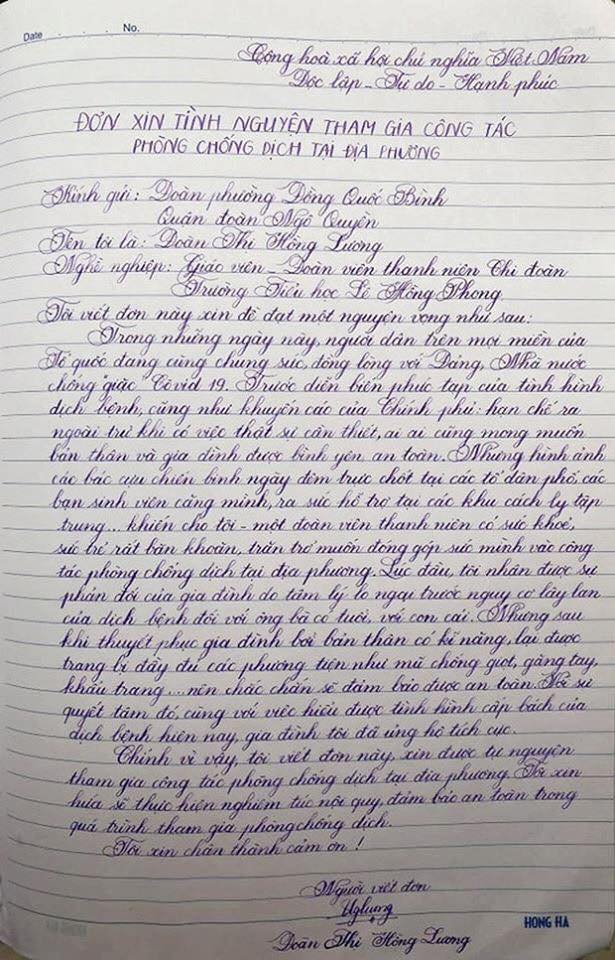 Date . . . . No.
Cộng hoà xã hội chủ nghĩa Việt Nam
Độc lập - Tự do - Hạnh phúc
ĐƠN XIN TÌNH NGUYỆN THAM GIA CÔNG TÁC
PHÒNG CHỐNG DỊCH TẠI ĐỊA PHƯƠNG
Kính gửi: Đoàn phường Đồng Quốc Bình
Quận đoàn Ngô Quyền
Tên tôi là: Đoàn Thị Hồng Lương
Nghề nghiệp: Giáo viên - Đoàn viên thanh niên Chi đoàn
Trường Tiểu học Lê Hồng Phong.
Tôi viết đơn này xin đề đạt một nguyện vọng như sau:
Trong những ngày này, người dân trên mọi miền của
Tổ quốc đang cùng chung sức, đồng lòng với Đảng, Nhà nước
chống "giặc" Covid 19. Trước diễn biến phức tạp của tình hình
dịch bệnh, cũng như khuyến cáo của Chính phủ: hạn chế ra
ngoài trừ khi có việc thật sự cần thiết, ai ai cũng mong muốn
bản thân và gia đình được bình yên an toàn. Nhưng hình ảnh
các bác cựu chiến binh ngày đêm trực chốt tại các tổ dân phố, các
bạn sinh viên căng mình, ra sức hỗ trợ tại các khu cách ly tập
trung... khiến cho tôi - một đoàn viên thanh niên có sức khoẻ,
sức trẻ rất băn khoăn, trăn trở muốn đóng góp sức mình vào công
tác phòng chống dịch tại địa phương. Lúc đầu, tôi nhận được sự
phản đối của gia đình do tâm lý lo ngại trước nguy cơ lây lan
của dịch bệnh đối với ông bà có tuổi, với con cái. Nhưng sau
khi thuyết phục gia đình bởi bản thân có kĩ năng, lại được
trang bị đầy đủ các phương tiện như mũ chống giọt, găng tay,
khẩu trang... nên chắc chắn sẽ đảm bảo được an toàn. Với sự
quyết tâm đó, cùng với việc hiểu được tình hình cấp bách của
dịch bệnh hiện nay, gia đình tôi đã ủng hộ tích cực.
Chính vì vậy, tôi viết đơn này, xin được tự nguyện
tham gia công tác phòng chống dịch tại địa phương. Tôi xin
hứa sẽ thực hiện nghiêm túc nội quy, đảm bảo an toàn trong
quá trình tham gia phòng chống dịch.
Tôi xin chân thành cảm ơn !
Người viết đơn
Đoàn Thị Hồng Lương
HONG HA